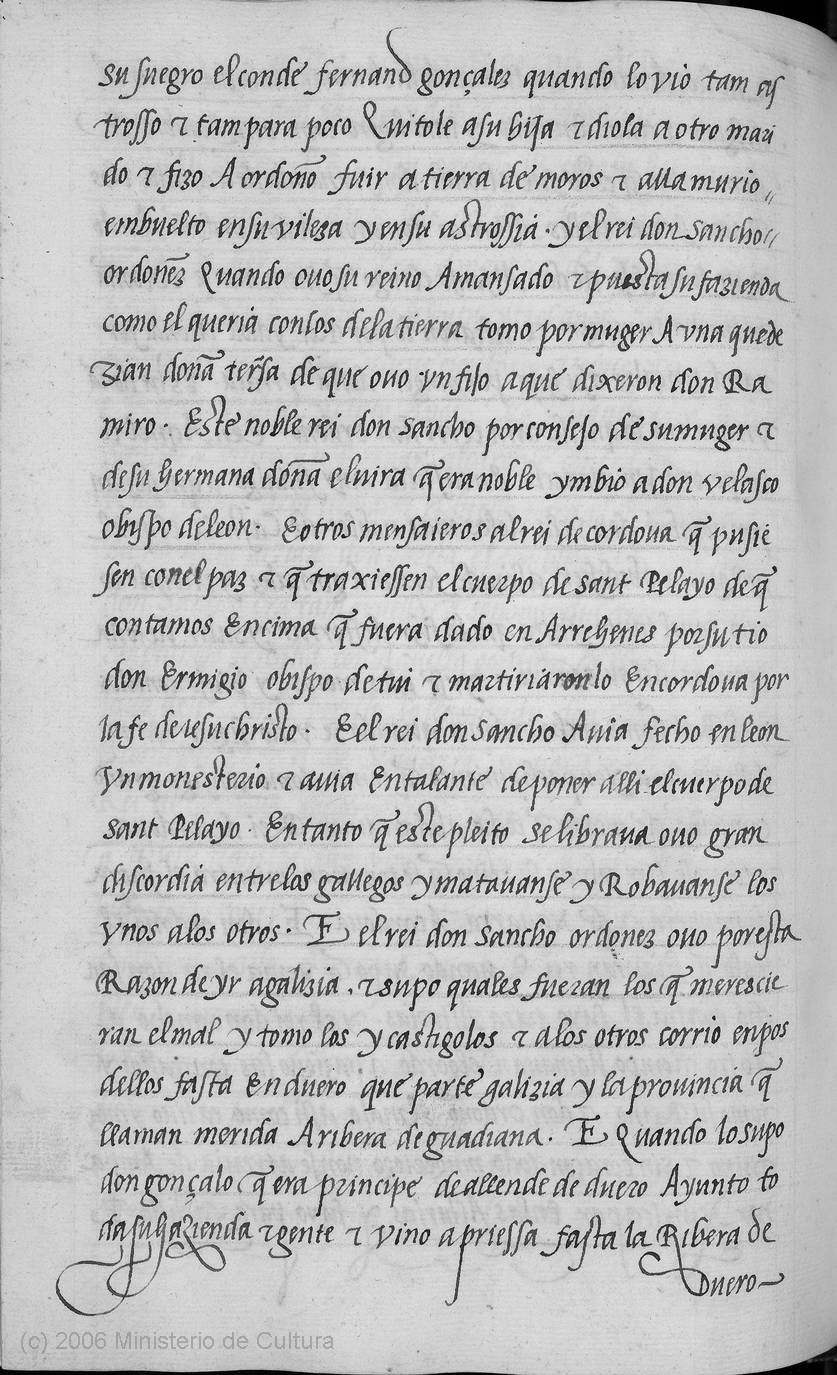 su suegro el conde fernand gonçalez quando lo vio tam as
trosso & tam para poco Quitole a su hija & diola a otro mari
do & fizo A ordoño fuir a tierra de moros & alla murio
embuelto en su vileza y en su astrossia · y el rei don sancho
ordoñez Quando ovo su reino Amansado & puesta su fazienda
como el queria con los de la tierra tomo por muger A vna que de
zian doña terẽsa de que ovo vn fijo a que dixeron don Ra
miro · Este noble rei don sancho por consejo de su muger &
de su hermana doña elvira q̃ era noble ymbio a don velasco
obispo de leon · E otros mensaieros al rei de cordova q̃ pusie
sen con el paz & q̃ traxiessen el cuerpo de sant Pelayo de q̃
contamos Encima q̃ fuera dado en Arrehenes por su tio
don Ermigio obispo de tui & martiriaronlo Encordova por
la fe de iesuchristo · E el rei don sancho Avia fecho en leon
Vn monesterio & avia En talante de poner alli el cuerpo de
sant Pelayo · En tanto q̃ este pleito se librava ovo gran
discordia entre los gallegos y matavanse y Robavanse los
vnos a los otros · E el rei don sancho ordonez ovo por esta
Razon de yr a galizia · & supo quales fueran los q̃ merescie
ran el mal y tomo los y castigolos & a los otros corrio en pos
dellos fasta En duero que parte galizia y la provincia q̃
llaman merida A ribera de guadiana · E Quando lo supo
don gonçalo q̃ era principe de allende de duero Ayunto to
da su hazienda & gente & vino apriessa fasta la Ribera de
Duero
(c) 2006 Ministerio de Cultura